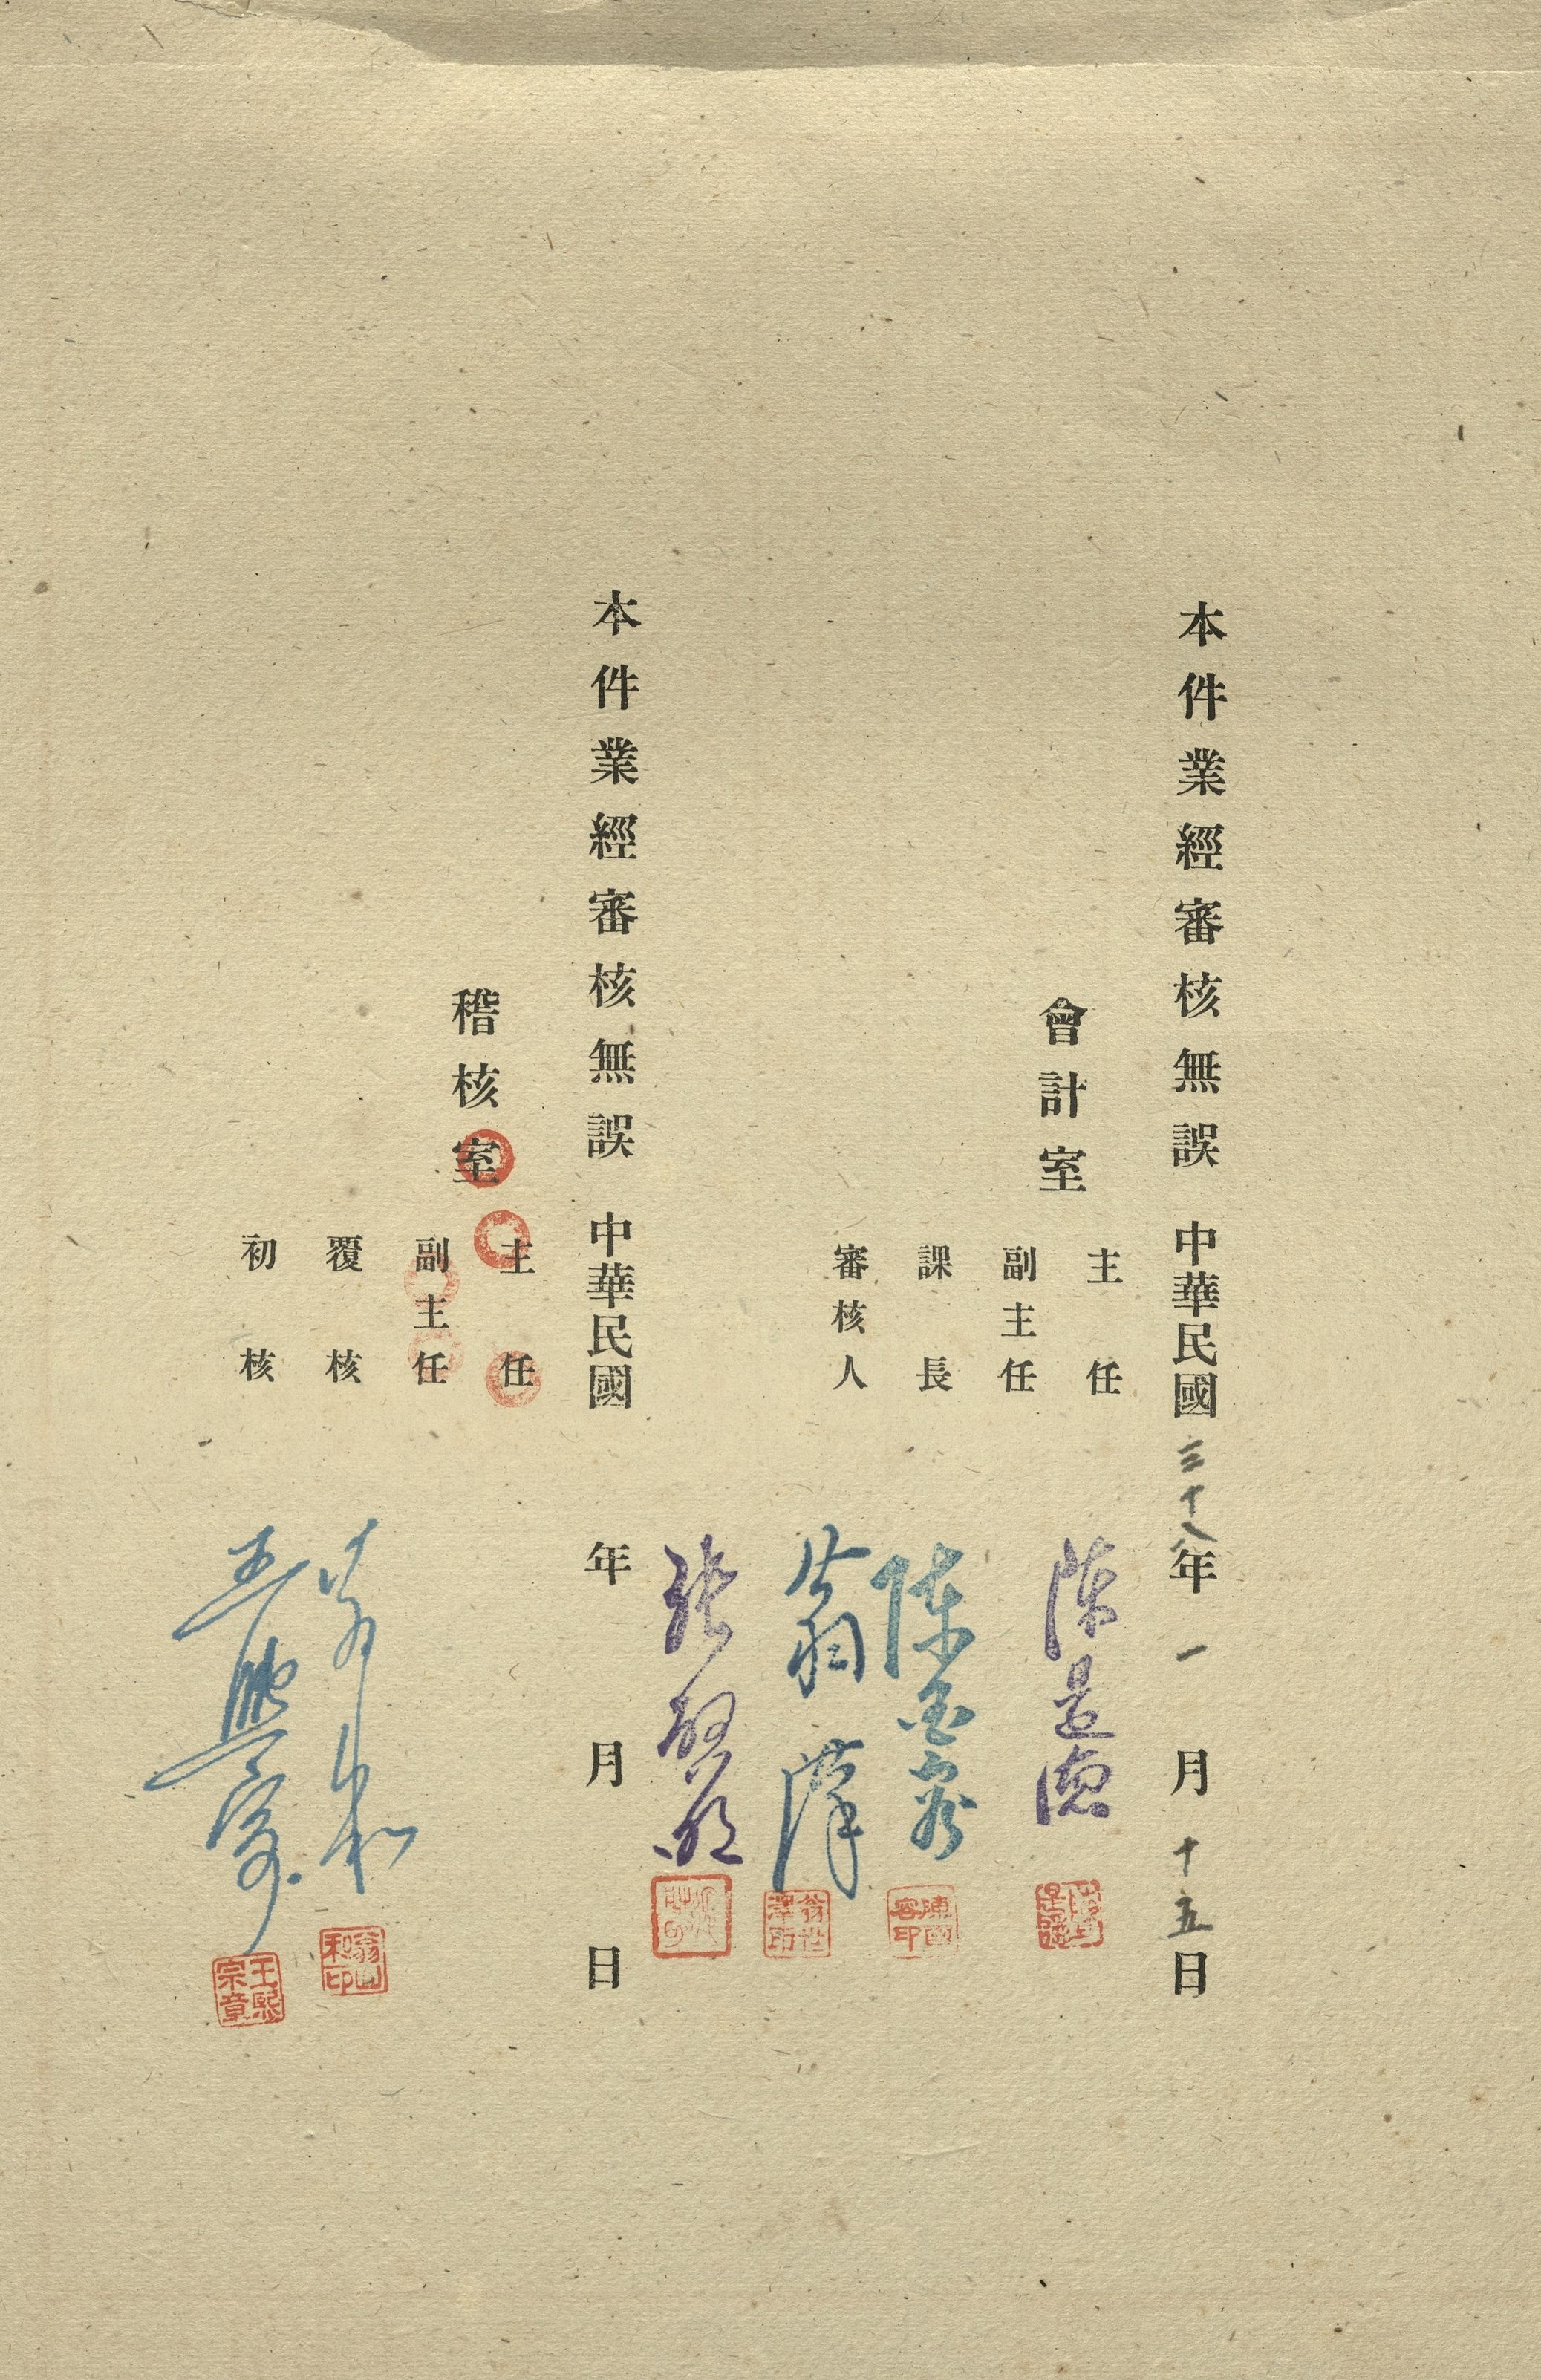 本件業經審核無誤 中華民國三十八年一月十五日
會計室
主任 陳是德
副主任
課長 陳國容
陳國容印
審核人 翁世澤
翁世澤印
本件業經審核無誤 中華民國 年 月 日
稽核室
主任
副主任
覆核
初核 王熙宗
王熙宗章